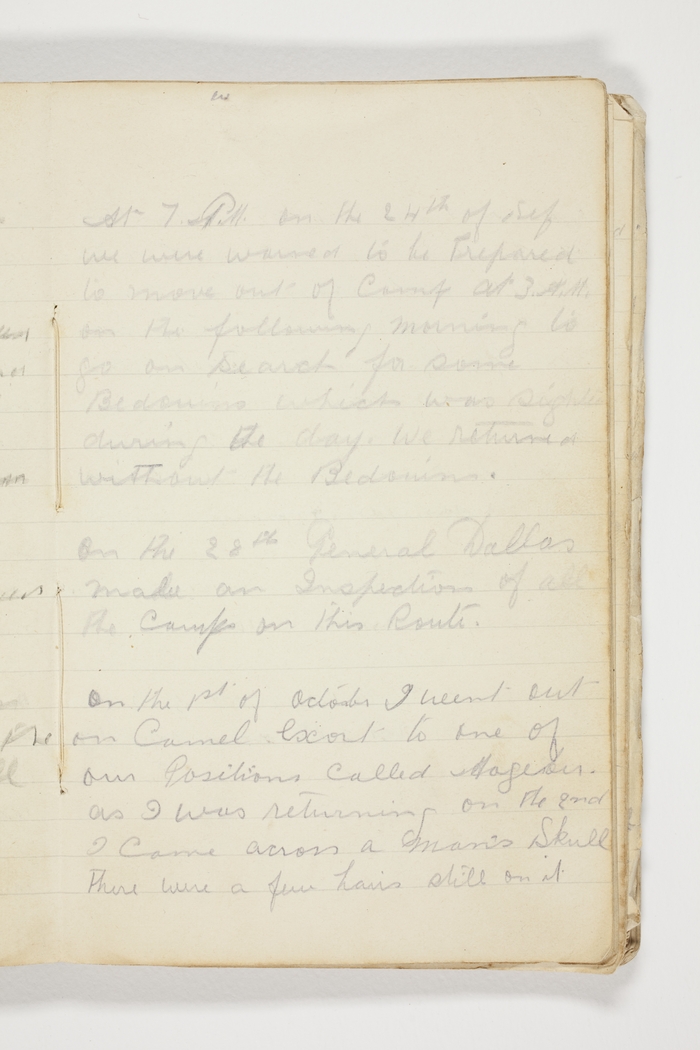 At 7. P.M. on the 24th of Sep
we were warned to be Prepared
to move out of Camp at 3. A.M.
on the following morning to
go on Search for some
Bedouins which was sighted
during the day. We returned
without the Bedouins.
On the 28th General Dallas
made an Inspection of all
the Camps on this Route.
on the 1st of October I went out
on Camel Escort to one of
our Positions called
as I was returning on the 2nd
I Came across a man's Skull
There were a few hairs still on it